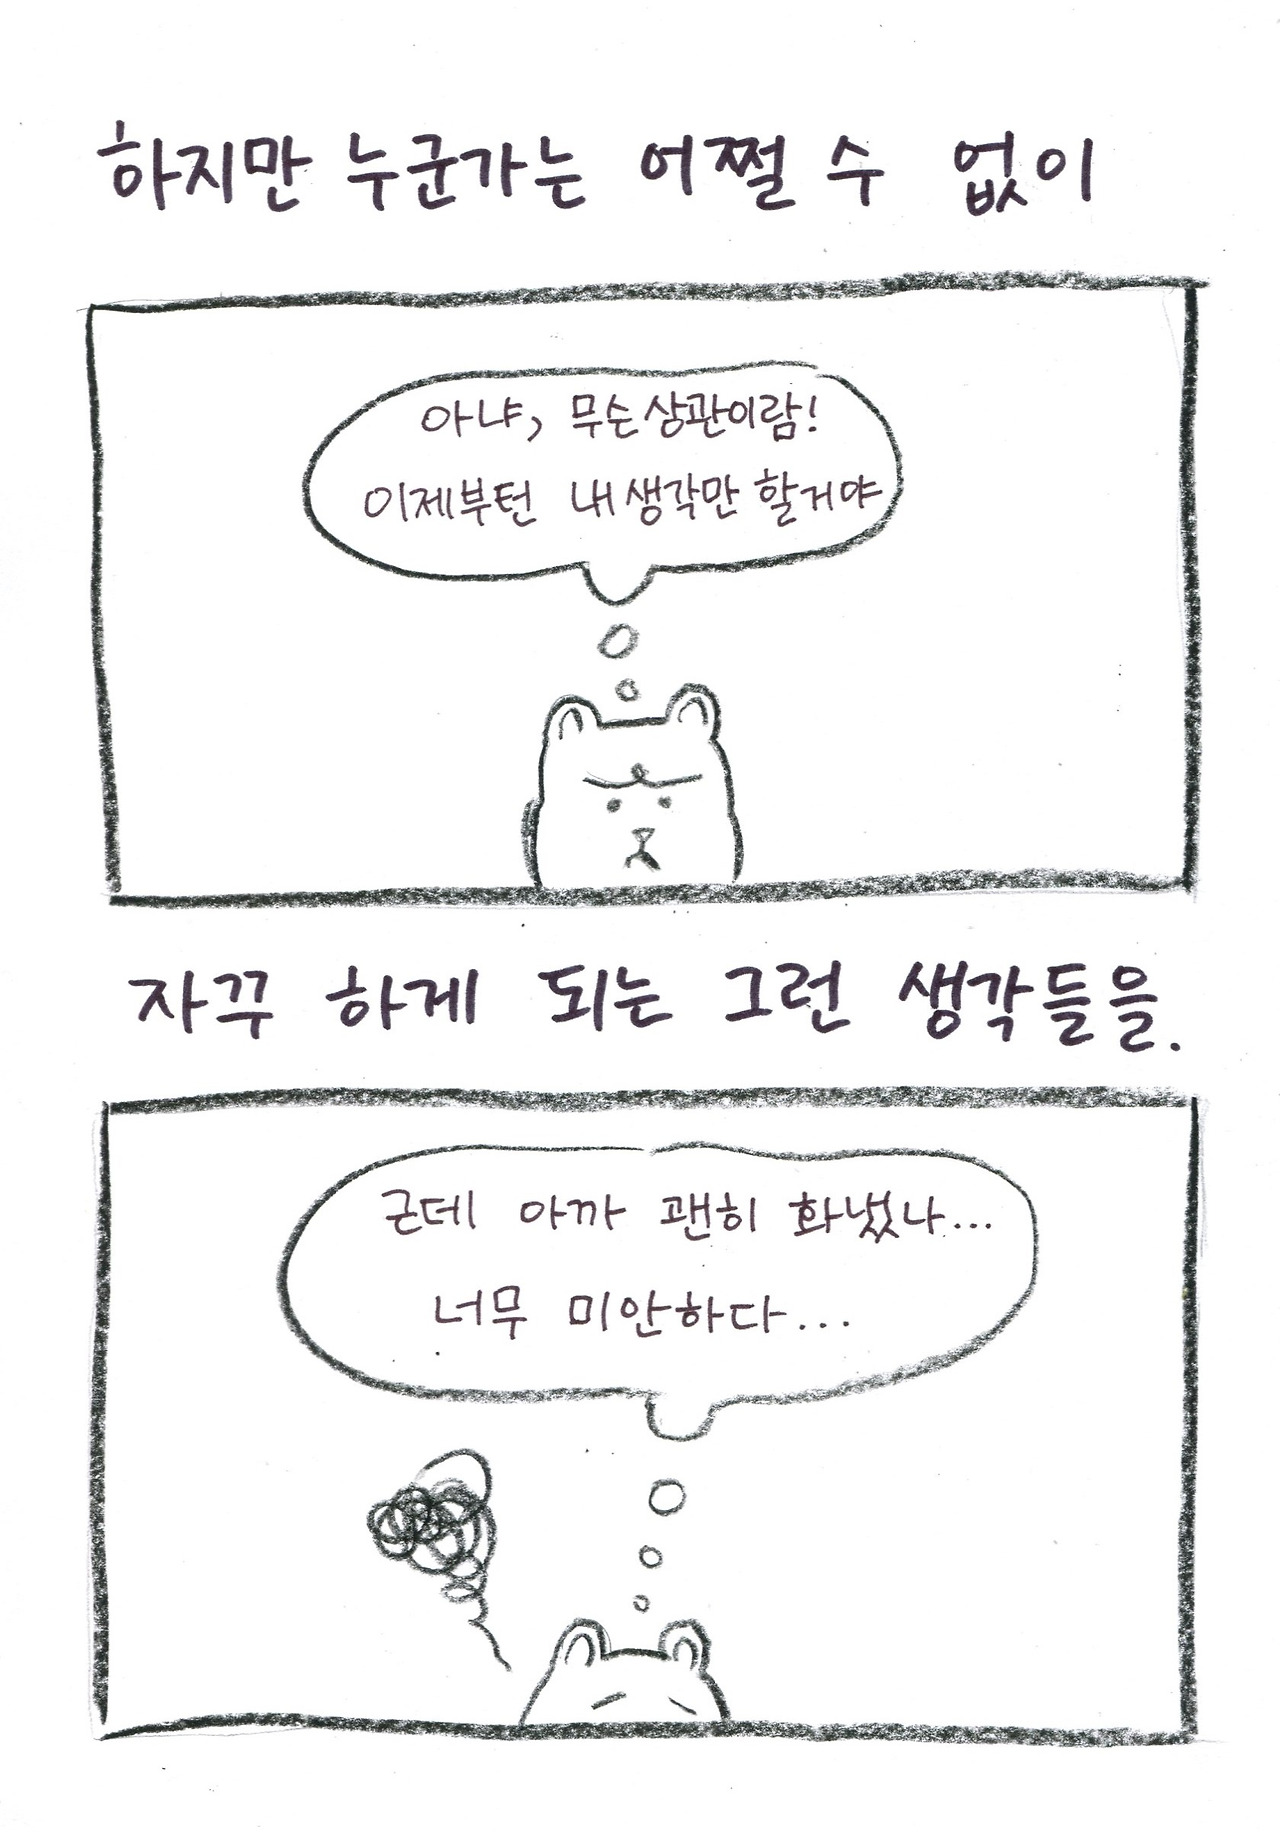 하지만 누군가는 어쩔 수 없이
아냐, 무슨상관이람!
이제부턴 내생각만 할거야
자꾸 하게 되는 그런 생각들을.
근데 아까 괜히 화냈나...
너무 미안하다...